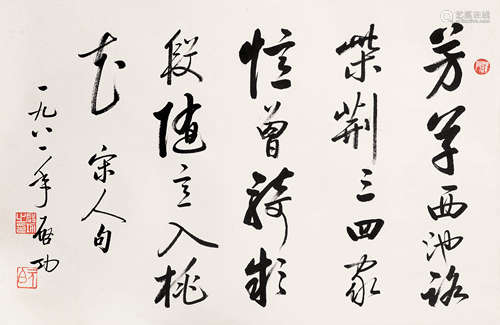 芳草西池路
柴荆三四家
憶曾騎款
段随意入桃
花 宋人句
一九八一年 启功